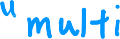 u multi